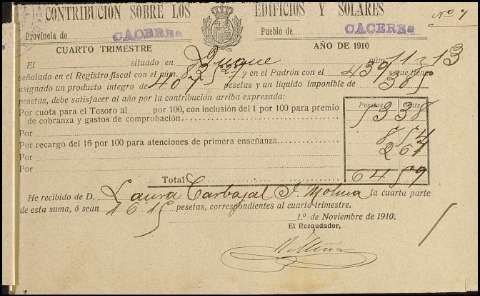 Nº 7
CONTRIBUCIÓN SOBRE LOS EDIFICIOS Y SOLARES
Provincia de CACERES Pueblo de CACERES
CUARTO TRIMESTRE AÑO DE 1910
El situado en Duque 11 y 13
señalado en el Registro fiscal con el núm. y en el Padrón con el 439 que tiene
asignado un producto íntegro de 407 pesetas y un líquido imponible de 305
pesetas, debe satisfacer al año por la contribución arriba expresada:
Pesetas
Por cuota para el Tesoro al por 100, con inclusión del 1 por 100 para premio
de cobranza y gastos de comprobación
5338
Por
854
Por recargo del 16 por 100 para atenciones de primera enseñanza
267
Por
Total 6459
He recibido de D. Laura Carbajal S. Molina la cuarta parte
de esta suma, ó sean 1615 pesetas, correspondientes al cuarto trimestre.
1.º de Noviembre de 1910.
El Recaudador,